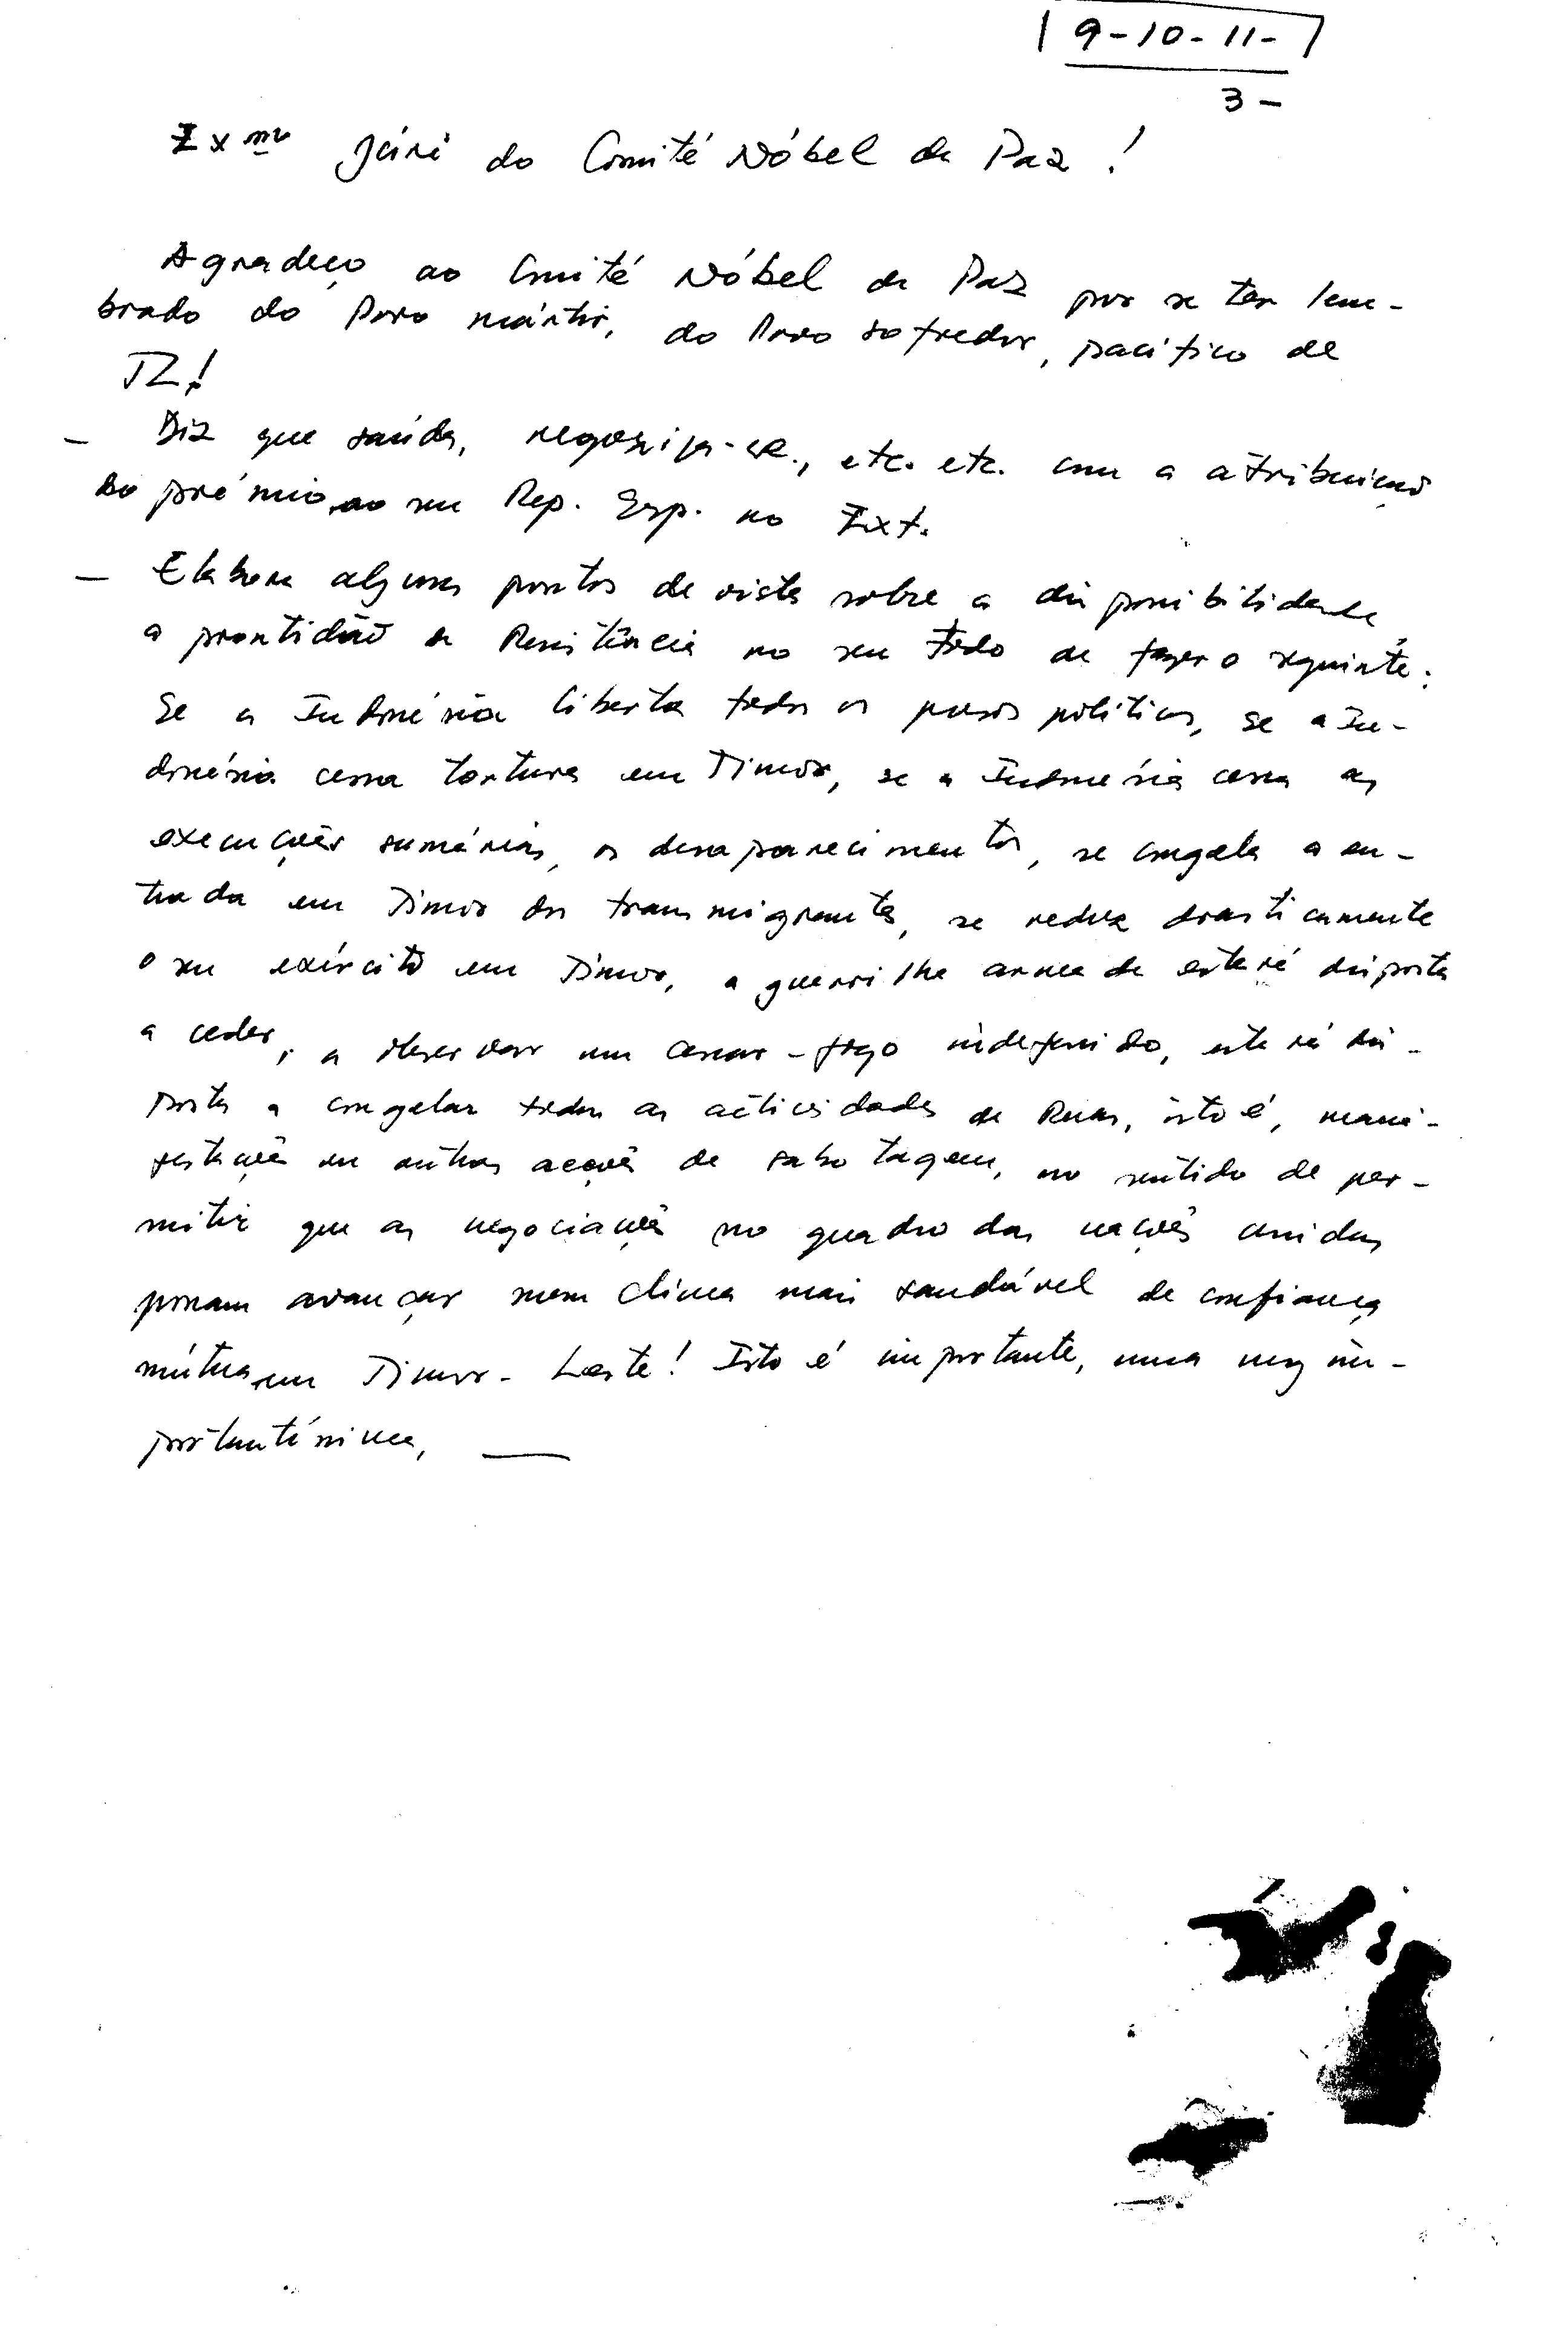 9-10-11-
3-
Exmo Júri do Comité Nóbel da Paz!
Agradeço ao Comité Nóbel da Paz por se ter lem-
brado do Povo mártir, do Povo sofredor, pacífico de
TL!
- Diz que saúda, regozija-se, etc. etc. com a atribuição
do prémio ao seu Rep. Esp. no Ext.
- Elabora alguns pontos de vista sobre a disponibilidade,
a prontidão da Resistência no seu todo de fazer o seguinte:
Se a Indonésia liberta todos os presos políticos, se a In-
donésia cessa tortura em Timor, se a Indonésia cessa as
execuções sumárias, os desaparecimentos, se congela a en-
trada em Timor dos transmigrantes, se reduz drasticamente
o seu exército em Timor, a guerrilha armada estará disposta
a ceder, a observar um cessar-fogo indefinido, estará dis-
posta a congelar todas as actividades de Ruas, isto é, mani-
festações ou outras acções de sabotagem, no sentido de per-
mitir que as negociações no quadro das nações unidas
possam avançar num clima mais saudável de confiança
mútua em Timor-Leste! Isto é importante, uma msg im-
portantíssima, —